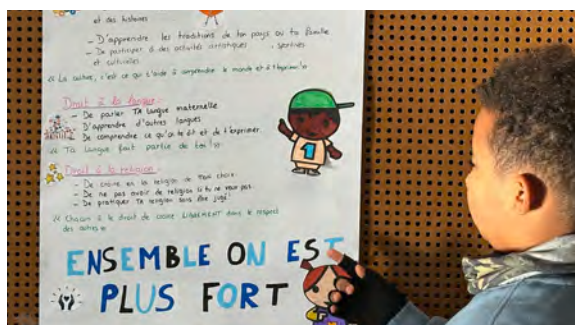 et des histoires
- D'apprendre les traditions de ton pays ou ta famille
- De participer à des activités artistiques, sportives
et culturelles
« La culture, c'est ce qui t'aide à comprendre le monde et à t'exprimer »
Droit à la langue :
- De parler TA langue maternelle
- D'apprendre d'autres langues
- De comprendre ce qu'on te dit et de t'exprimer
« Ta langue fait partie de toi ! »
Droit à la religion :
- De croire en la religion de ton choix
- De ne pas avoir de religion si tu ne veux pas
- De pratiquer TA religion sans être jugé !
« Chacun a le droit de croire LIBREMENT dans le respect
des autres »
1
ENSEMBLE ON EST
PLUS FORT